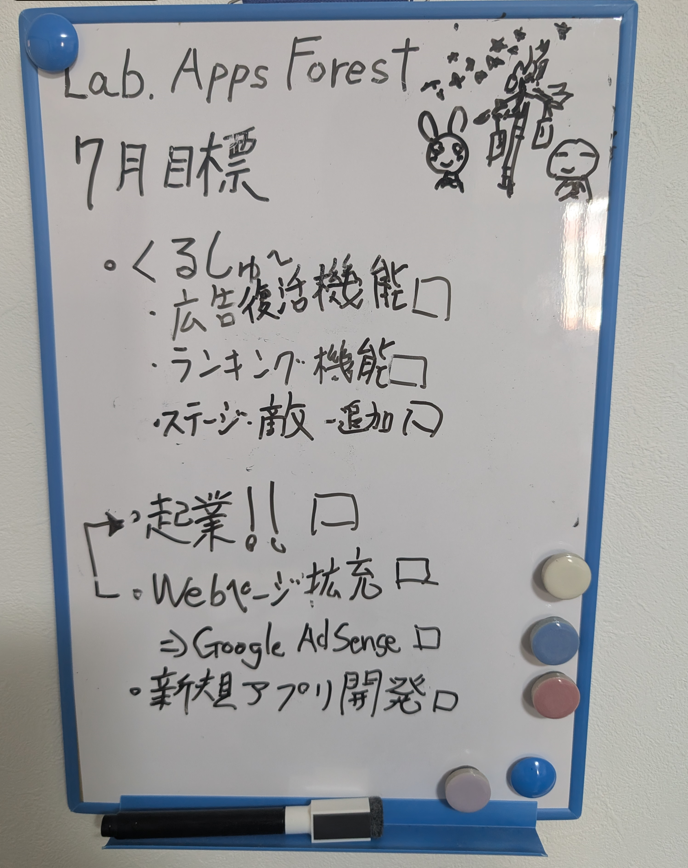 Lab. Apps Forest
7月目標
・くるしゅ～
・広告復活機能□
・ランキング機能□
・ステージ・敵 追加□
・起業!! □
・Webページ拡充□
⇒Google AdSense□
・新規アプリ開発□